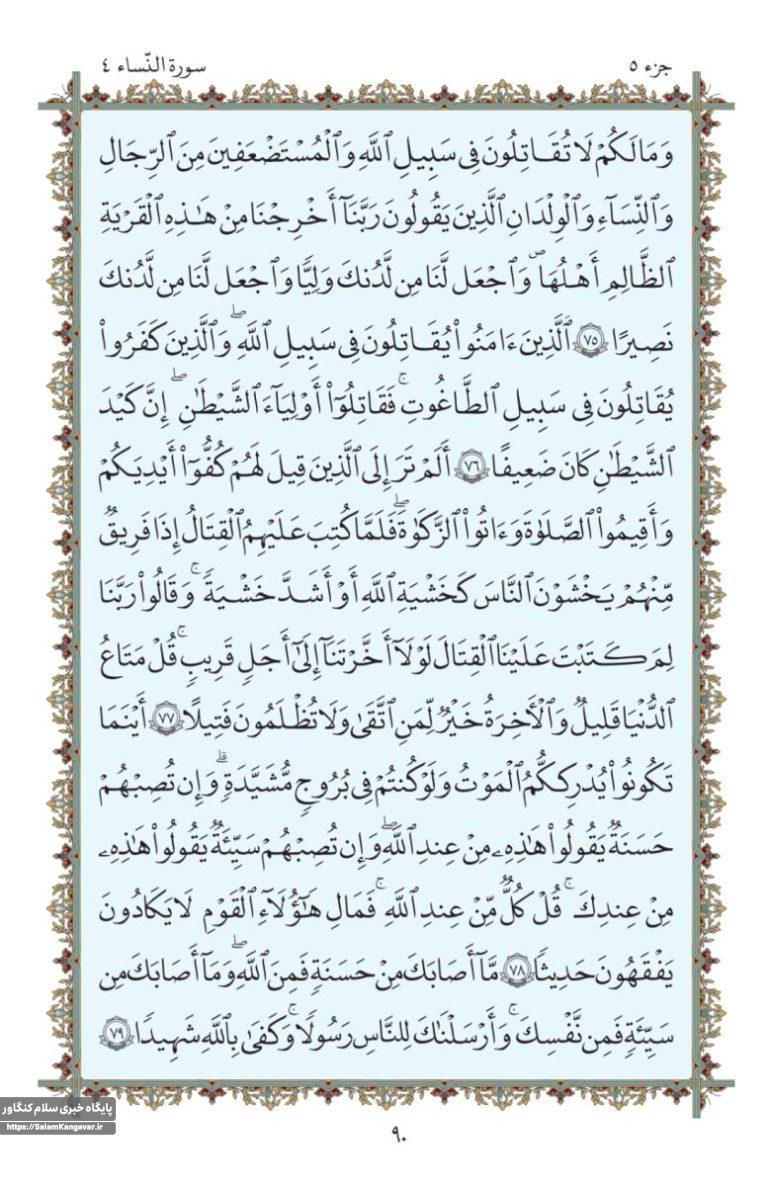 جزء ٥
سورة النّساء ٤
وَمَا لَكُمْ لَا تُقَـٰتِلُونَ فِى سَبِيلِ ٱللَّهِ وَٱلْمُسْتَضْعَفِينَ مِنَ ٱلرِّجَالِ
وَٱلنِّسَآءِ وَٱلْوِلْدَٰنِ ٱلَّذِينَ يَقُولُونَ رَبَّنَآ أَخْرِجْنَا مِنْ هَـٰذِهِ ٱلْقَرْيَةِ
ٱلظَّالِمِ أَهْلُهَا ۖ وَٱجْعَل لَّنَا مِن لَّدُنكَ وَلِيًّا وَٱجْعَل لَّنَا مِن لَّدُنكَ
نَصِيرًا ﴿٧٥﴾ ٱلَّذِينَ ءَامَنُوا۟ يُقَـٰتِلُونَ فِى سَبِيلِ ٱللَّهِ ۖ وَٱلَّذِينَ كَفَرُوا۟
يُقَـٰتِلُونَ فِى سَبِيلِ ٱلطَّـٰغُوتِ ۚ فَقَـٰتِلُوٓا۟ أَوْلِيَآءَ ٱلشَّيْطَـٰنِ ۖ إِنَّ كَيْدَ
ٱلشَّيْطَـٰنِ كَانَ ضَعِيفًا ﴿٧٦﴾ أَلَمْ تَرَ إِلَى ٱلَّذِينَ قِيلَ لَهُمْ كُفُّوٓا۟ أَيْدِيَكُمْ
وَأَقِيمُوا۟ ٱلصَّلَوٰةَ وَءَاتُوا۟ ٱلزَّكَوٰةَ ۖ فَلَمَّا كُتِبَ عَلَيْهِمُ ٱلْقِتَالُ إِذَا فَرِيقٌ
مِّنْهُمْ يَخْشَوْنَ ٱلنَّاسَ كَخَشْيَةِ ٱللَّهِ أَوْ أَشَدَّ خَشْيَةً ۚ وَقَالُوا۟ رَبَّنَا
لِمَ كَتَبْتَ عَلَيْنَا ٱلْقِتَالَ لَوْلَآ أَخَّرْتَنَآ إِلَىٰٓ أَجَلٍ قَرِيبٍ ۚ قُلْ مَتَـٰعُ
ٱلدُّنْيَا قَلِيلٌ وَٱلْأَخِرَةُ خَيْرٌ لِّمَنِ ٱتَّقَىٰ وَلَا تُظْلَمُونَ فَتِيلًا ﴿٧٧﴾ أَيْنَمَا
تَكُونُوا۟ يُدْرِككُّمُ ٱلْمَوْتُ وَلَوْ كُنتُمْ فِى بُرُوجٍ مُّشَيَّدَةٍ ۗ وَإِن تُصِبْهُمْ
حَسَنَةٌ يَقُولُوا۟ هَـٰذِهِۦ مِنْ عِندِ ٱللَّهِ ۖ وَإِن تُصِبْهُمْ سَيِّئَةٌ يَقُولُوا۟ هَـٰذِهِۦ
مِنْ عِندِكَ ۚ قُلْ كُلٌّ مِّنْ عِندِ ٱللَّهِ ۖ فَمَالِ هَـٰٓؤُلَآءِ ٱلْقَوْمِ لَا يَكَادُونَ
يَفْقَهُونَ حَدِيثًا ﴿٧٨﴾ مَّآ أَصَابَكَ مِنْ حَسَنَةٍ فَمِنَ ٱللَّهِ ۖ وَمَآ أَصَابَكَ مِن
سَيِّئَةٍ فَمِن نَّفْسِكَ ۚ وَأَرْسَلْنَـٰكَ لِلنَّاسِ رَسُولًا ۚ وَكَفَىٰ بِٱللَّهِ شَهِيدًا ﴿٧٩﴾
پایگاه خبری سلام کنگاور
https://SalamKangavar.ir
٩٠